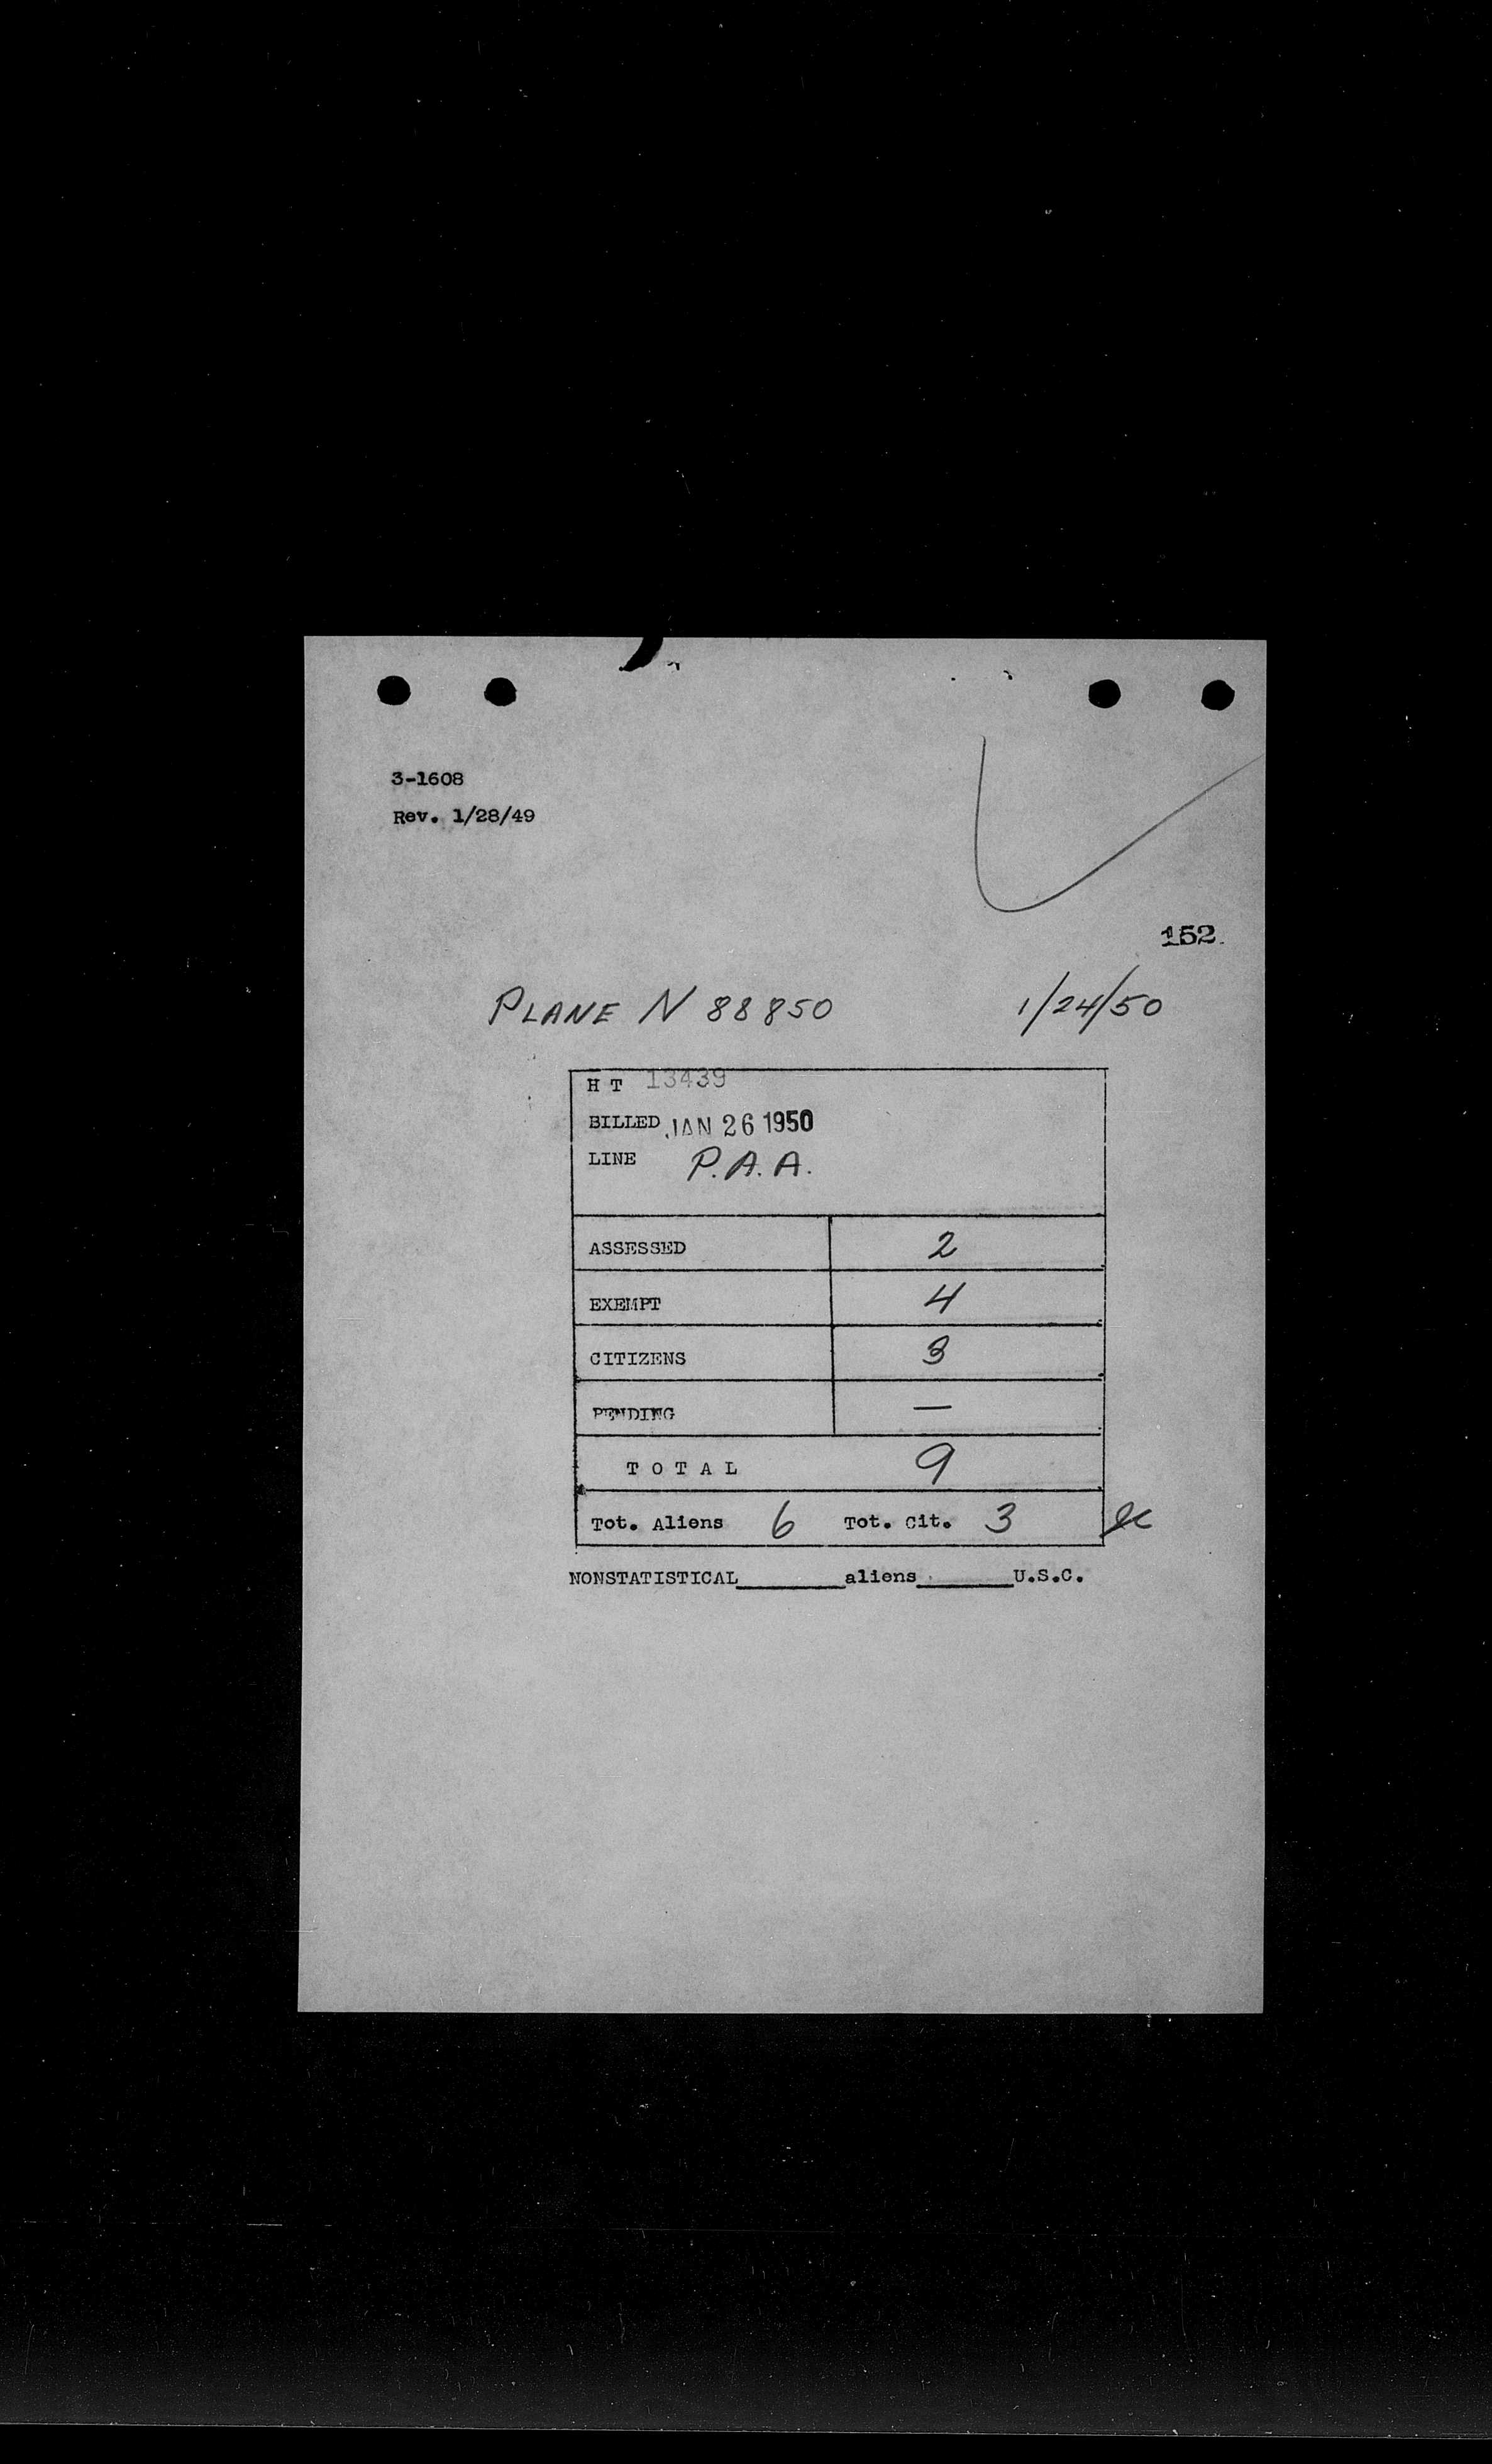 3-1608
Rev. 1/28/49
152
PLANE N 88850 1/24/50
H T 13439
BILLED JAN 26 1950
LINE P.A.A.
ASSESSED 2
EXEMPT 4
CITIZENS 3
PENDING —
T O T A L 9
Tot. Aliens 6 Tot. Cit. 3
NONSTATISTICAL________aliens_______U.S.C.